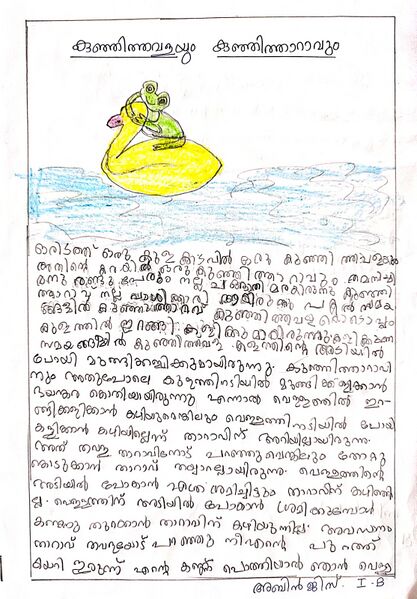 കുഞ്ഞിത്തവളയും കുഞ്ഞിത്താറാവും
ഒരിടത്ത് ഒരു കുള കടവിൽ ഒരു കുഞ്ഞി ത്തവളയും
അതിന്റെ കരകിൽ ഒരു കുഞ്ഞിത്താറാവും താമസിച്ചി
രുന്നു
താറാവ് നല്ല
കുഞ്ഞിത്തവള
കുളത്തിൽ ഇറങ്ങി കുളിക്കുമായിരുന്നു
സമയങ്ങളിൽ കുഞ്ഞിത്തവള കുളത്തിന്റെ അടിയിൽ
പോയി മുങ്ങിക്കളിക്കുമായിരുന്നു. കുഞ്ഞിത്താറാവി
നും അതുപോലെ കുളത്തിനടിയിൽ മുങ്ങിക്കളിക്കാൻ
ഭയങ്കര കൊതിയായിരുന്നു എന്നാൽ വെള്ളത്തിൽ ഇറ-
ങ്ങിക്കളിക്കാൻ കഴിയുമെങ്കിലും വെള്ളത്തിനടിയിൽ പോയി
കളിക്കാൻ കഴിയില്ലെന്ന് താറാവിന് അറിയില്ലായിരുന്നു.
അത് തവള താറാവിനോട് പറഞ്ഞുവെങ്കിലും തോറ്റു
കൊടുക്കാൻ താറാവ് തയ്യാറല്ലായിരുന്നു. വെള്ളത്തിന്റെ
അടിയിൽ പോകാൻ ശ്രമിച്ചിട്ടും താറാവിന് കഴിഞ്ഞി
ല്ല. വെള്ളത്തിന് അടിയിൽ പോകാൻ ശ്രമിക്കുമ്പോൾ
കണ്ണു തുറക്കാൻ താറാവിന് കഴിയുന്നില്ല. അവസാനം
താറാവ് തവളയോട് പറഞ്ഞു നീ എന്റെ പുറത്ത്
കയറി ഇരുന്ന് എന്റെ കണ്ണ് പൊത്തിയാൽ ഞാൻ വെള്ള
അബിൻ ജിസ്. I-B